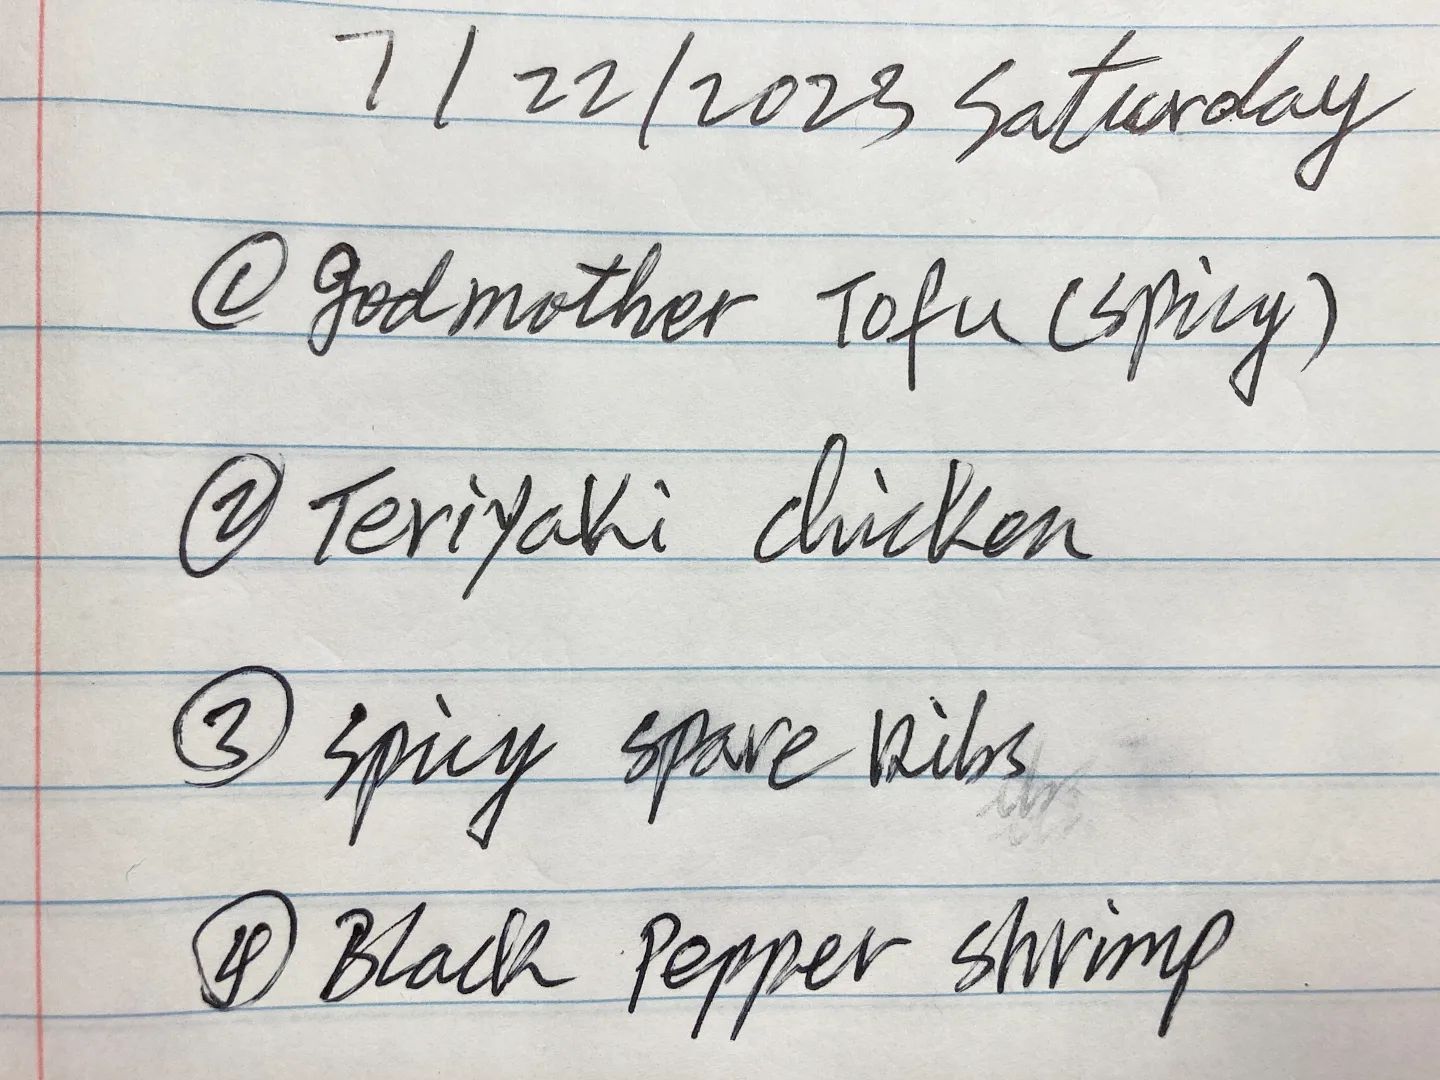 7/22/2023 Saturday
① godmother Tofu (spicy)
② Teriyaki chicken
③ spicy spare Ribs
④ Black Pepper shrimp